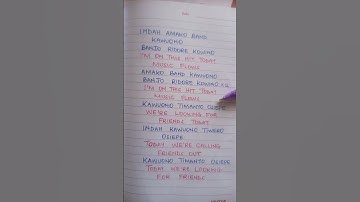 IMDAH AMAKO BAND
KAWUONO
BANJO RIDORE KOWINO
I'M ON THIS HIT TODAY
MUSIC FLOWS
AMAKO BAND KAWUONO
BANJO RIDORE KOWINO X2
I'M ON THIS HIT TODAY
MUSIC FLOWS
KAWUONO TIMANYO OSIEPE
WE'RE LOOKING FOR
FRIENDS TODAY
IMDAH KAWUONO TIWERO
OSIEPE
TODAY WE'RE CALLING
FRIENDS OUT
KAWUONO TIMANYO OSIEPE
TODAY WE'RE LOOKING
FOR FRIENDS